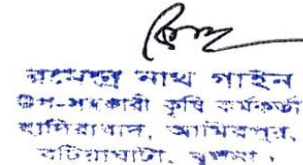 রমেন্দ্র নাথ গাইন
উপ-সহকারী কৃষি কর্মকর্তা
আমিরপুর,
বটিয়াঘাটা, খুলনা।